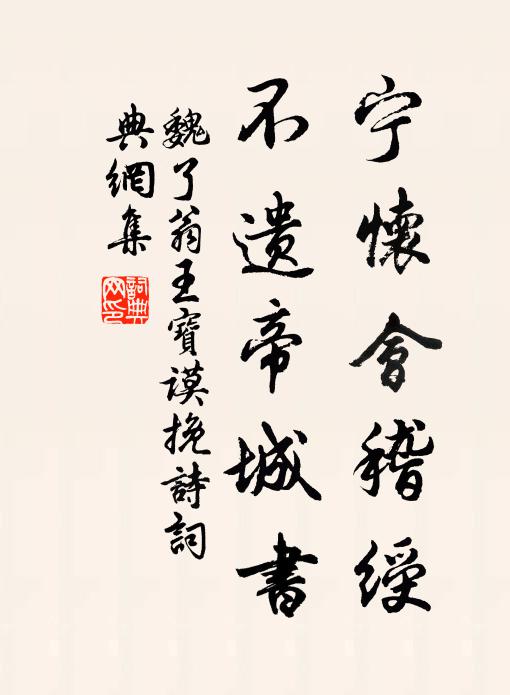 宁懷會稽綬
不遺帝城書
魏了翁王寶謨挽詩詞
典網集
詞典
网印